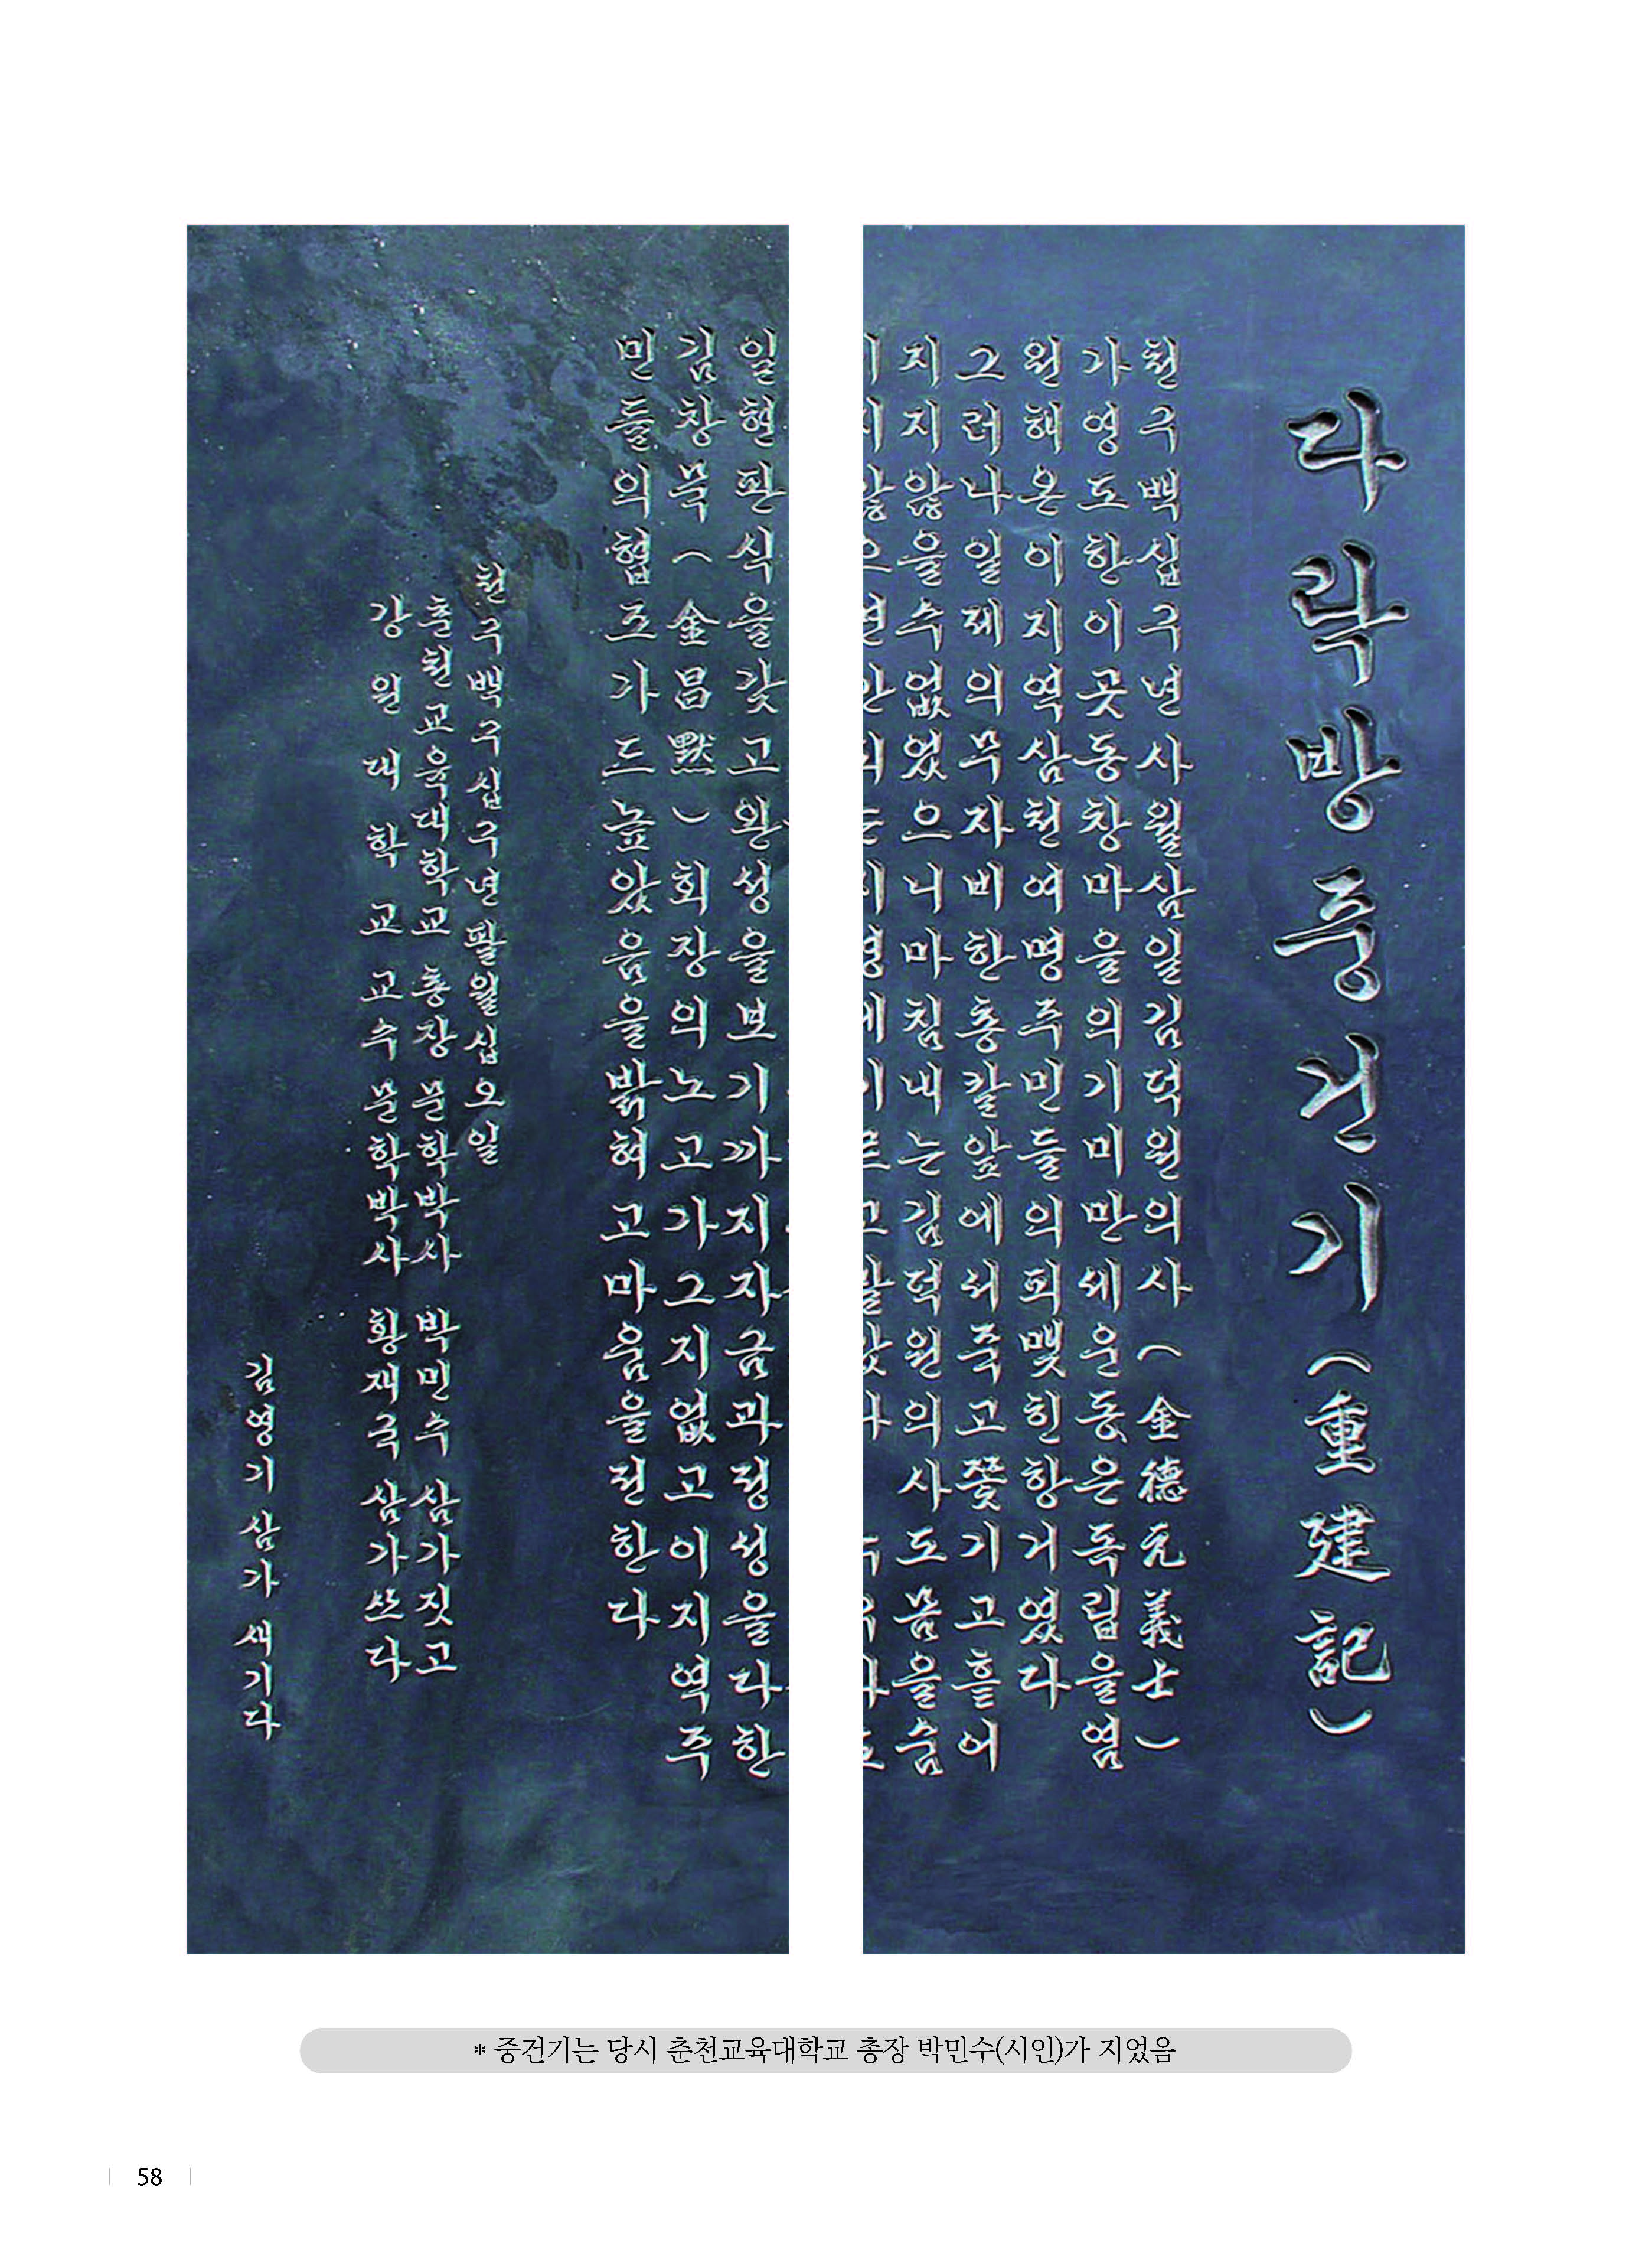 다락방중건기(重建記)
천구백십구년사월삼일김덕원의사(金德元義士)
가영도한이곳동창마을의기미만세운동은독립을염
원해온이지역삼천여명주민들의피맺힌항거였다
그러나일제의무자비한총칼앞에서죽고쫓기고흩어
지지않을수없었으니마침내는김덕원의사도몸을숨
일현판식을갖고완성을보기까지자금과정성을다한
김창묵(金昌黙)회장의노고가그지없고이지역주
민들의협조가드높았음을밝혀고마움을전한다
천구백구십구년팔월십오일
춘천교육대학교 총장 문학박사 박민수 삼가짓고
강원대학교 교수 문학박사 황재국 삼가쓰다
김영기 삼가 새기다
* 중건기는 당시 춘천교육대학교 총장 박민수(시인)가 지었음
58